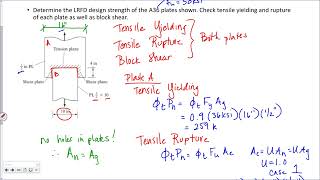 Fu = 50ksi
• Determine the LRFD design strength of the A36 plates shown. Check tensile yielding and rupture
of each plate as well as block shear.
Tension plane
Shear plane
Shear plane
B
A
10 in
Tensile Yielding
Tensile Rupture
Block Shear
Both plates
Plate A
Tensile Yielding
ϕtPn = ϕt Fy Ag
= 0.9 (36ksi)(16")(1/2")
= 259 k
no holes in plates!
∴ An = Ag
Tensile Rupture
ϕtPn = ϕt Fu Ae
Ae = U An = U Ag
U = 1.0
case 1